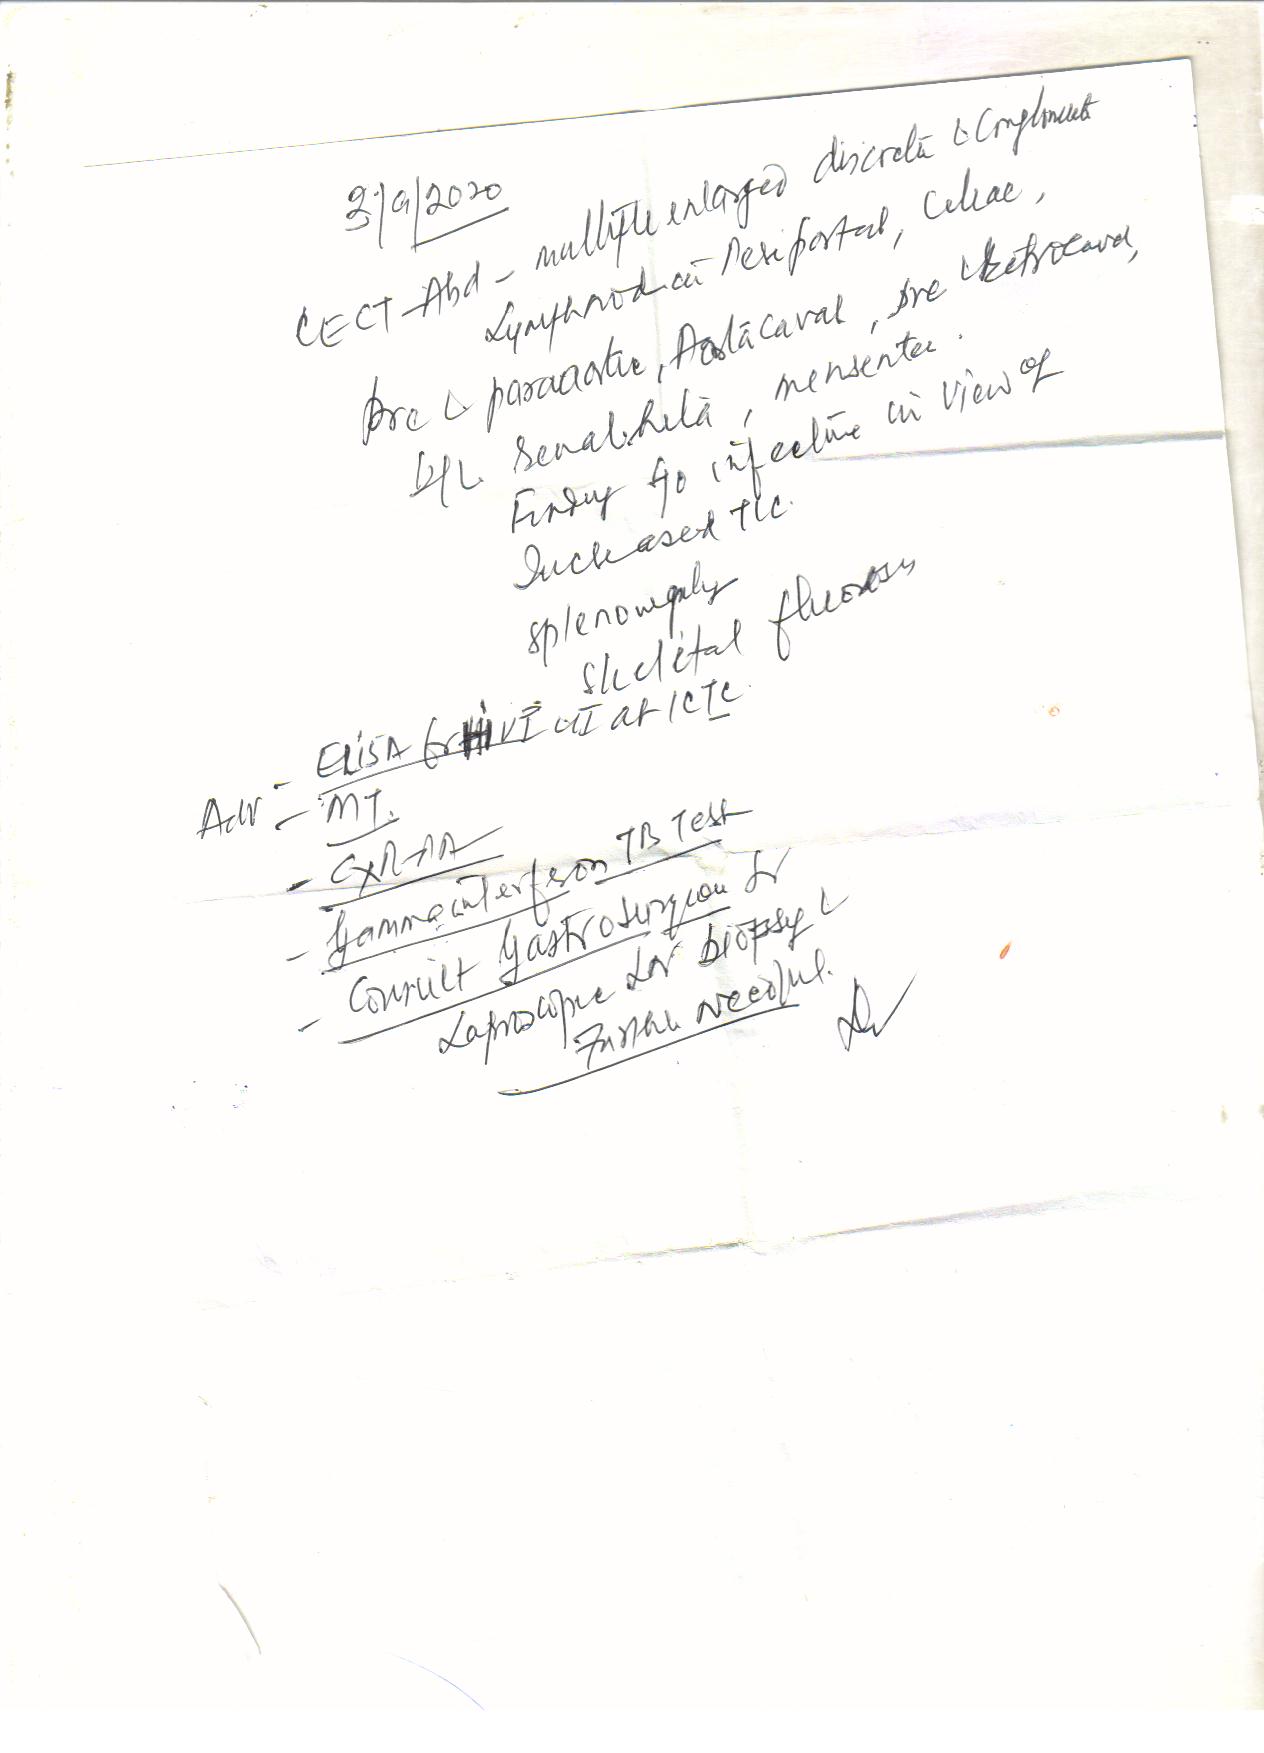 3/9/2020
CECT-Abd - multiple enlarged discrete & Conglomerate
Lymphnode in Periportal, Celiac,
pre & paraaortic, Aortacaval, pre & Retrocaval,
B/L renal hila, mensentei.
Finding f/o infective in view of
Increased TLC.
splenomegaly
skeletal fluorosis
Adv - ELISA for HIV I & II at ICTC
- MT.
- CXR-PA
- Gamma interferon TB Test
- Consult Gastrosurgeon for
Laproscopic LN biopsy &
Further needful.